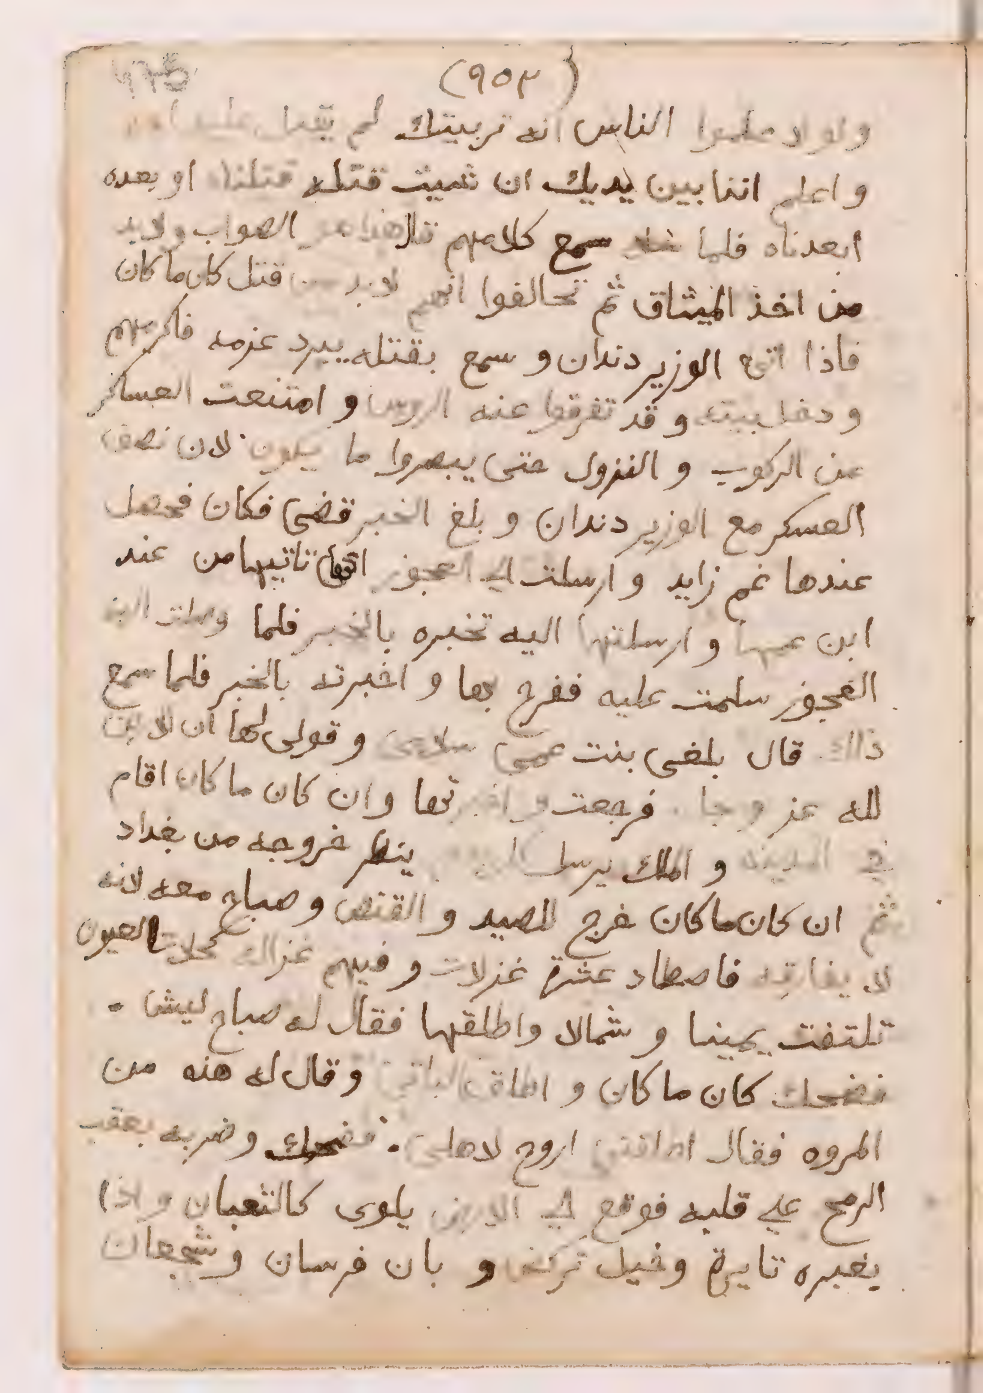 (٩٥٣)
ولولا علموا الناس انه تربيتك لم يقبل عليه احد
واعلم اننا بين يديك ان شييت قتله قتلناه او بعده
ابعدناه فلما سمع كلامهم قال هذا هو الصواب ولابد
من اخذ الميثاق ثم تحالفوا انهم لابد من قتل كان ماكان
فاذا اتى الوزير دندان و سمع بقتله يبرد عزمه فاكرمهم
ودخل بيته وقد تفرقوا عنه الروس وامتنعت العساكر
عن الركوب و النزول حتى يبصروا ما يكون لان نصف
العسكر مع الوزير دندان و بلغ الخبر قضى فكان فحصل
عندها غم زايد وارسلت الي العجوز انها تاتيها من عند
ابن عمها وارسلتها اليه تخبره بالخبر فلما وصلت اليه
العجوز سلمت عليه ففرح بها واخبرته بالخبر فلما سمع
ذالك قال بلغى بنت عمى سلامى وقولى لها ان الارض
لله عز وجل فرجعت واخبرتها وان كان ماكان اقام
في المدينه و الملك يرسل ينظر خروجه من بغداد
ثم ان كان ماكان خرج للصيد و القنص و صباح معه لانه
لا يفارقه فاصطاد عشرة غزلات و فيهم غزاله كحلات العيون
تلتفت يمينا و شمالا واطلقها فقال له صباح ليش
فضحك كان ماكان واطلق الباقى وقال له هذه من
المروه فقال اطلقنى اروح لاهلى فضحك وضربه بعقب
الرمح علي قلبه فوقع الي الارض يلوى كالثعبان واذا
بغبره تايرة وخيل تركض و بان فرسان و شجعان